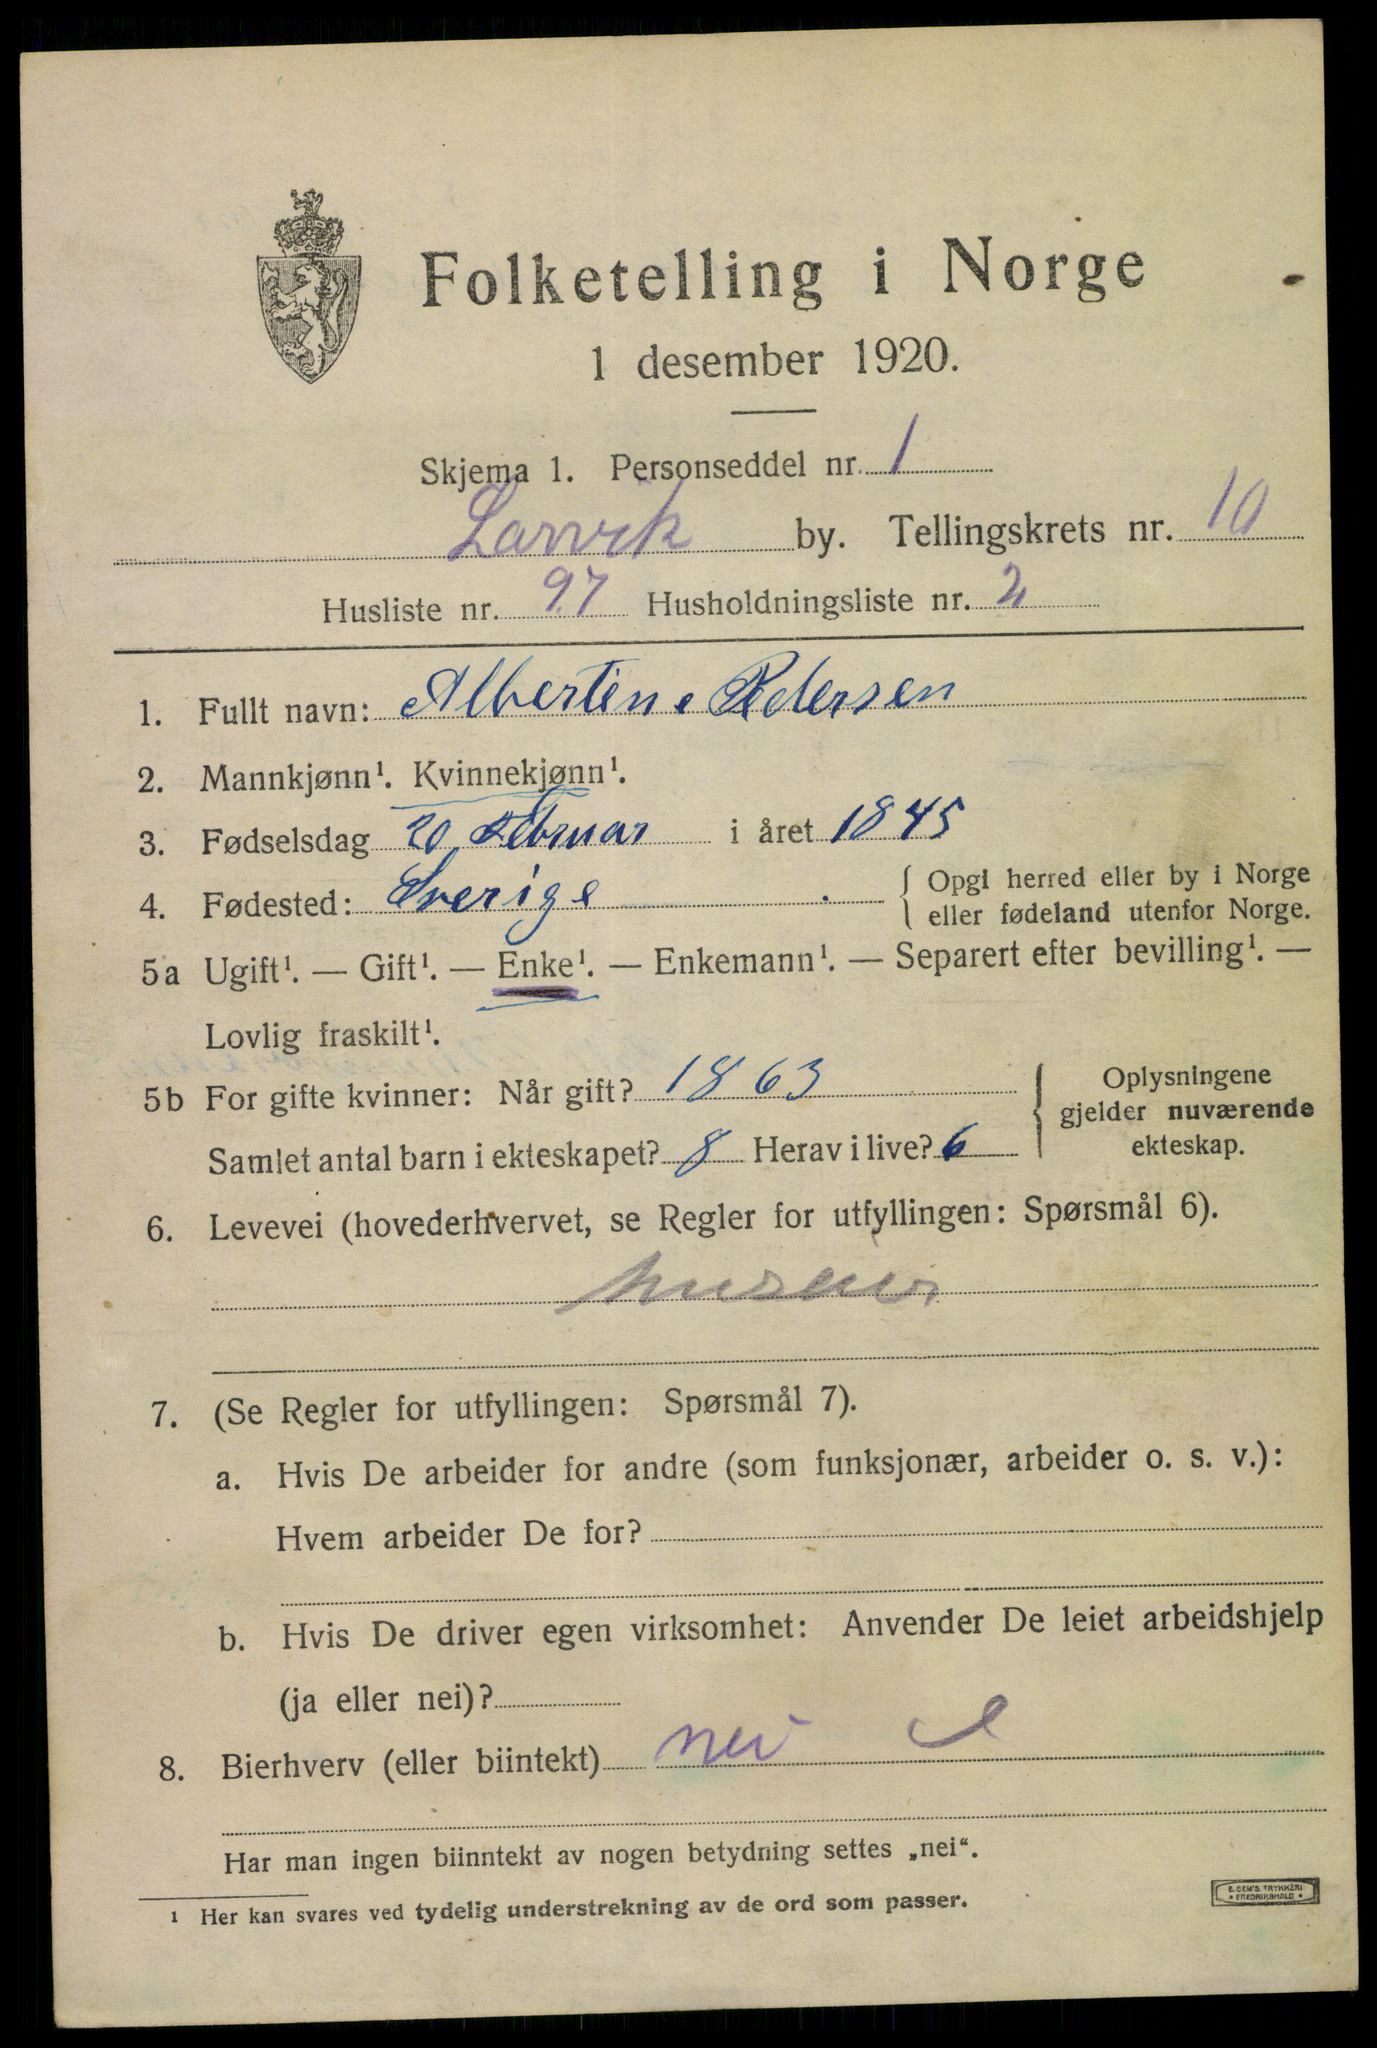 Folketelling i Norge
1 desember 1920.
Skjema 1. Personseddel nr. 1
Larvik by. Tellingskrets nr. 10
Husliste nr. 97 Husholdningsliste nr. 2
1. Fullt navn: Albertine Pedersen
2. Mannkjønn¹. Kvinnekjønn¹.
3. Fødselsdag 20 Februar i året 1845
4. Fødested: Sverige { Opgi herred eller by i Norge
eller fødeland utenfor Norge.
5a Ugift¹. — Gift¹. — Enke¹. — Enkemann¹. — Separert efter bevilling¹. —
Lovlig fraskilt¹.
5b For gifte kvinner: Når gift? 1863
Samlet antal barn i ekteskapet? 8 Herav i live? 6
Oplysningene
gjelder nuværende
ekteskap.
6. Levevei (hovederhvervet, se Regler for utfyllingen: Spørsmål 6).
7. (Se Regler for utfyllingen: Spørsmål 7).
a. Hvis De arbeider for andre (som funksjonær, arbeider o. s. v.):
Hvem arbeider De for?
b. Hvis De driver egen virksomhet: Anvender De leiet arbeidshjelp
(ja eller nei)?
8. Bierhverv (eller biintekt) nei
Har man ingen biinntekt av nogen betydning settes „nei“.
¹ Her kan svares ved tydelig understrekning av de ord som passer.
E. SEM'S TRYKKERI
• FREDRIKSHALD •